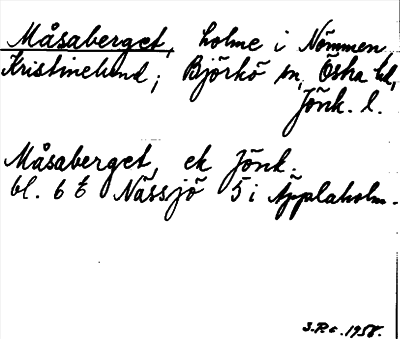 Måsaberget, holme i Nömmen,
Kristinelund; Björkö sn, Östra hd,
Jönk. l.
Måsaberget, ek Jönk.
bl. 6 t Nässjö 5 i Äpplaholm.
J.R-c. 1958.